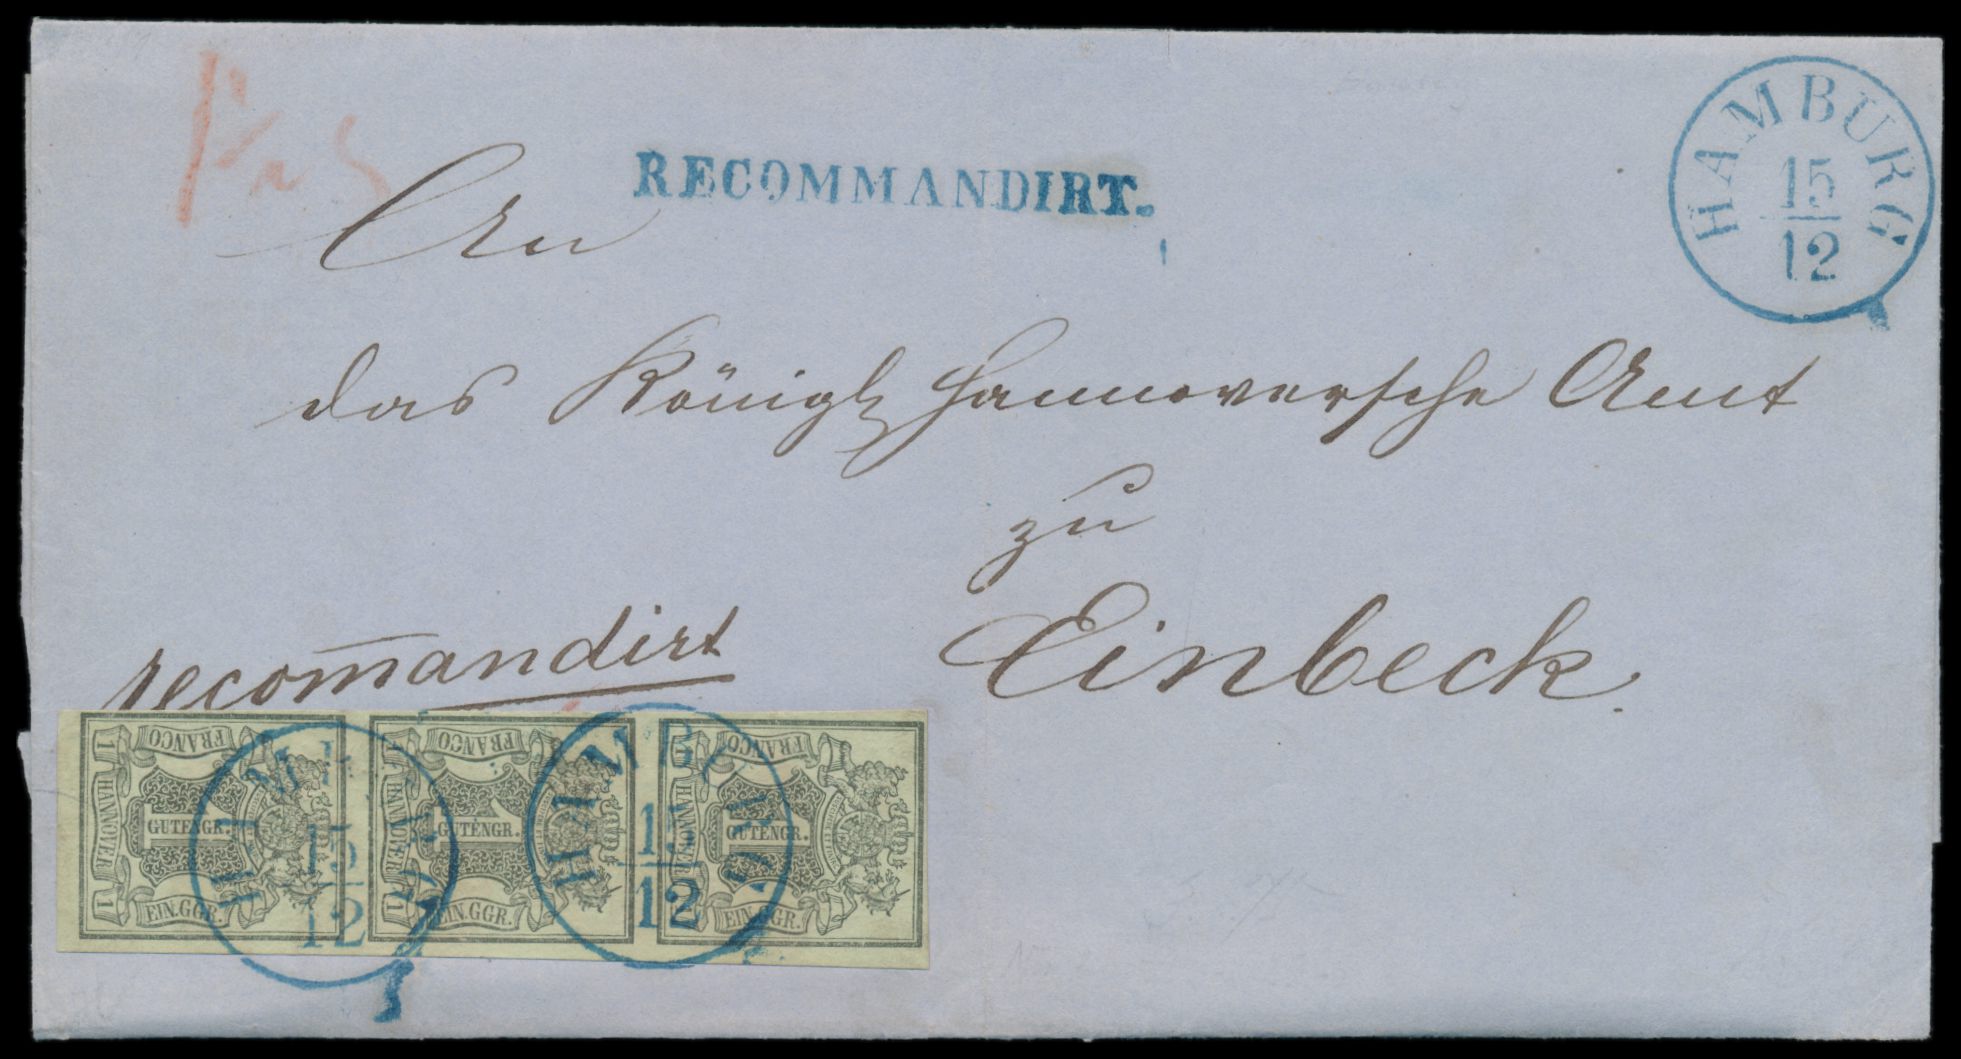 RECOMMANDIRT.
HAMBURG
15
12
An
das Königl Hannoversche Amt
zu
Einbeck.
recom̄andirt
FRANCO
1 HANNOVER 1
1
GUTENGR.
EIN.GGR.
FRANCO
1 HANNOVER 1
1
GUTENGR.
EIN.GGR.
FRANCO
HANNOVER
1
GUTENGR.
EIN.GGR.
HAMBURG
15
12
HAMBURG
15
12